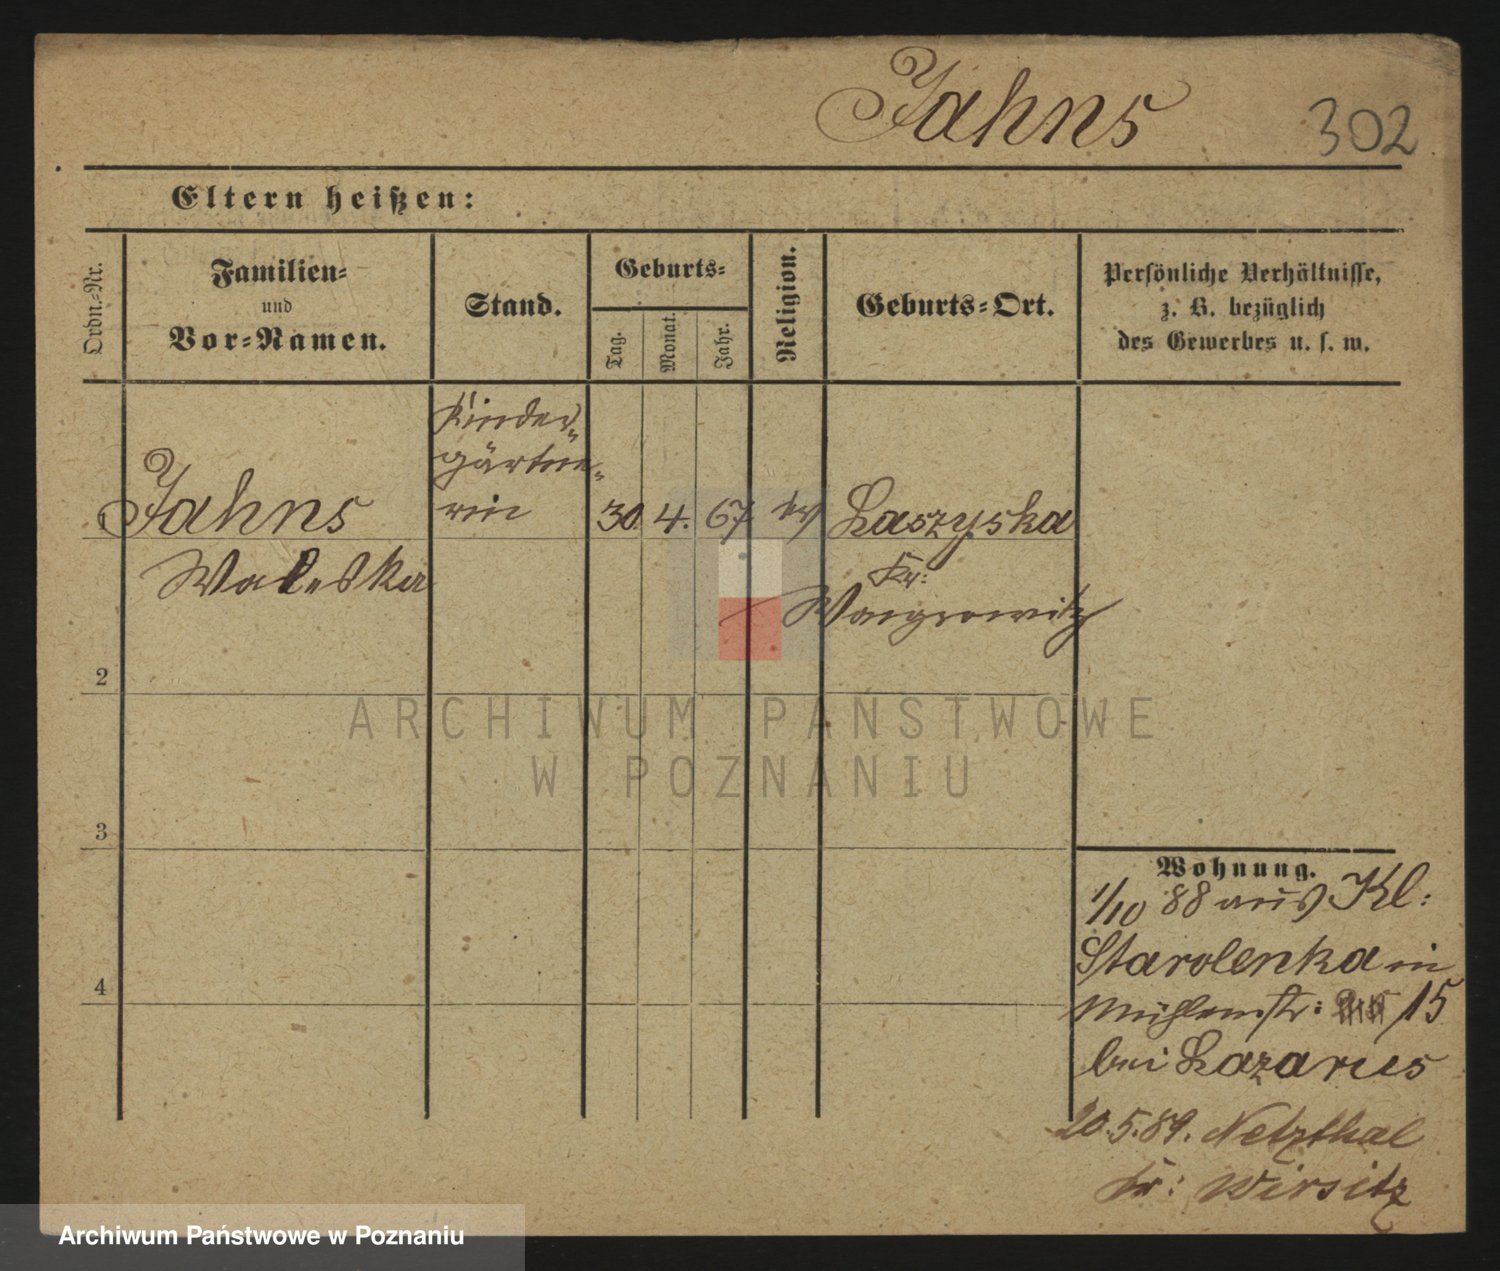 Jahns 302
Eltern heißen:
Ordn.-Nr.
Familien-
und
Vor-Namen.
Stand.
Geburts-
Tag.
Monat.
Jahr.
Religion.
Geburts-Ort.
Persönliche Verhältnisse,
z. B. bezüglich
des Gewerbes u. s. w.
Kinder-
gärtne-
rin
Jahns
30. 4. 67
ev
Laszyska
Waleska
Kr:
Wongrowitz
2
ARCHIWUM PAŃSTWOWE
W POZNANIU
3
Wohnung.
1/10 88 aus Kl:
Starolenka in
4
Mühlenstr: 15
bei Lazarus
20.5.89. Netzthal
Kr: Wirsitz
Archiwum Państwowe w Poznaniu